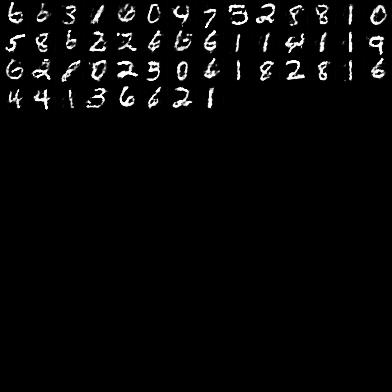 6 6 3 1 6 0 4 7 3 2 8 8 1 0
5 8 6 2 2 6 6 6 1 1 4 1 1 9
6 2 1 0 2 5 0 6 1 8 2 8 1 6
4 4 1 3 6 6 2 1